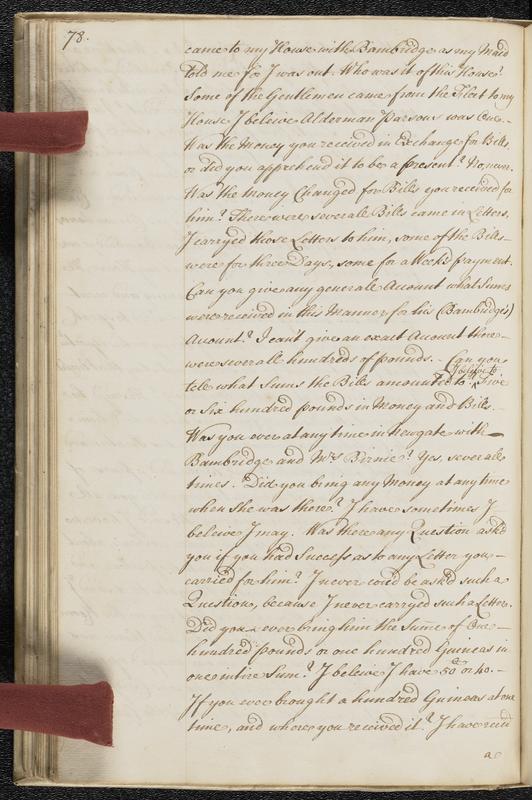 78.
came to my House with Bambridge as my Maid
told me for I was out. Who was it of this House?
Some of the Gentlemen came from the Fleet to my
House I beleive Alderman Parsons was One.
Was the Money you received in Exchange for Bills
or did you apprehend it to be a present?
Was the Money Changed for Bills you received for
him? There were severale Bills came in Letters,
I carryed those Letters to him, some of the Bills
were for three Days, some for a Week's payment.
Can you give any generale Account what Sums
were received in this Manner for his (Bambridge's)
Account? I can't give an exact Account there
were severale hundreds of pounds. Can you
tele what Sums the Bills amounted to Five
or Six hundred pounds in Money and Bills.
Was you ever at any time in Newgate with
Bambridge and Mrs Birnie? Yes, severale
times. Did you bring any Money at any time
when she was there? I have sometimes I
beleive I may. Was there any Question ask'd
you if you had Success as to any Letter you
carried for him? I never cou'd be ask'd such a
Question, because I never carryed such a Letter.
Did you ever bring him the Sum̄e of One
hundred pounds or one hundred Guineas in
one intire Sum? I beleive I have 50 or 40.
If you ever brought a hundred Guineas at one
time, and where you received it? I have recd
a